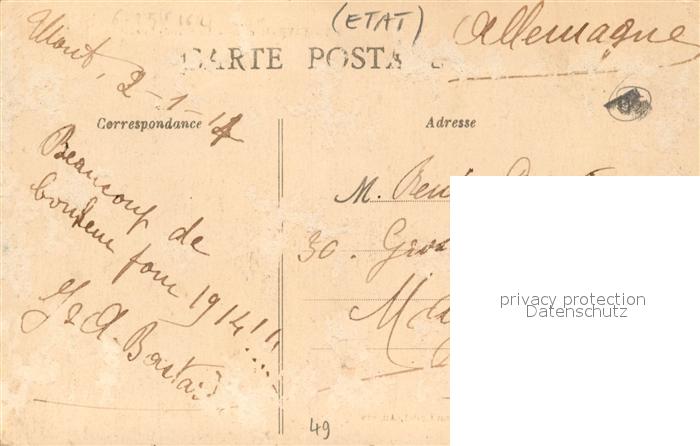 (ETAT) Allemagne
CARTE POSTA
2-1-14
Correspondance
Adresse
Beaucoup de
bonheur pour 1914!!!...
J & A. Bastai
M. René
30. Gros
Ma
privacy protection
Datenschutz
49